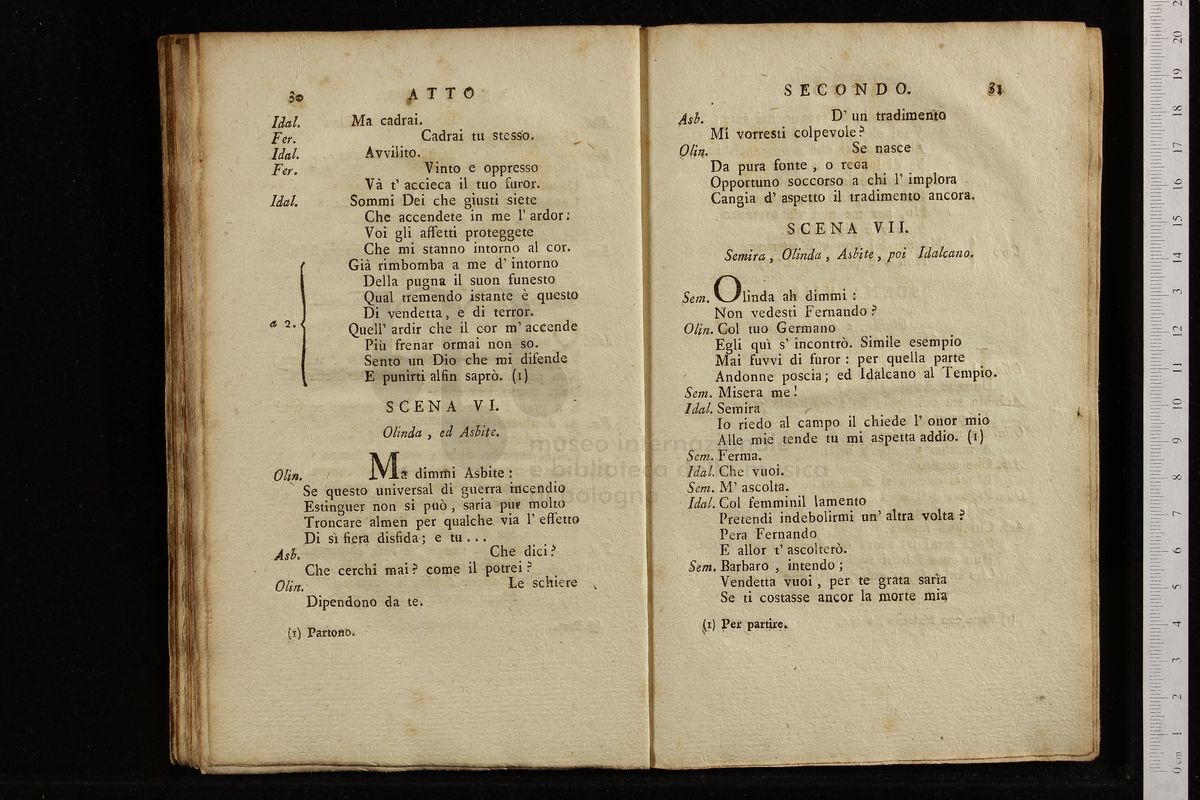 30 ATTO
Idal. Ma cadrai.
Fer. Cadrai tu stesso.
Idal. Avvilito.
Fer. Vinto e oppresso
Và t' accieca il tuo furor.
Idal. Sommi Dei che giusti siete
Che accendete in me l' ardor:
Voi gli affetti proteggete
Che mi stanno intorno al cor.
Già rimbomba a me d' intorno
Della pugna il suon funesto
Qual tremendo istante è questo
Di vendetta, e di terror.
a 2. Quell' ardir che il cor m' accende
Più frenar ormai non so.
Sento un Dio che mi difende
E punirti alfin saprò. (1)
SCENA VI.
Olinda, ed Asbite.
Olin. Ma dimmi Asbite:
Se questo universal di guerra incendio
Estinguer non si può, saria pur molto
Troncare almen per qualche via l' effetto
Di sì fiera disfida; e tu...
Asb. Che dici?
Che cerchi mai? come il potrei?
Olin. Le schiere
Dipendono da te.
(1) Partono.
SECONDO. 31
Asb. D' un tradimento
Mi vorresti colpevole?
Olin. Se nasce
Da pura fonte, o reca
Opportuno soccorso a chi l' implora
Cangia d' aspetto il tradimento ancora.
SCENA VII.
Semira, Olinda, Asbite, poi Idalcano.
Sem. Olinda ah dimmi:
Non vedesti Fernando?
Olin. Col tuo Germano
Egli quì s' incontrò. Simile esempio
Mai fuvvi di furor: per quella parte
Andonne poscia; ed Idalcano al Tempio.
Sem. Misera me!
Idal. Semira
Io riedo al campo il chiede l' onor mio
Alle mie tende tu mi aspetta addio. (1)
Sem. Ferma.
Idal. Che vuoi.
Sem. M' ascolta.
Idal. Col femminil lamento
Pretendi indebolirmi un' altra volta?
Pera Fernando
E allor t' ascolterò.
Sem. Barbaro, intendo;
Vendetta vuoi, per te grata sarìa
Se ti costasse ancor la morte mia
(1) Per partire.
museo internazionale
e biblioteca della musica
bologna
0 cm 1 2 3 4 5 6 7 8 9 10 11 12 13 14 15 16 17 18 19 20